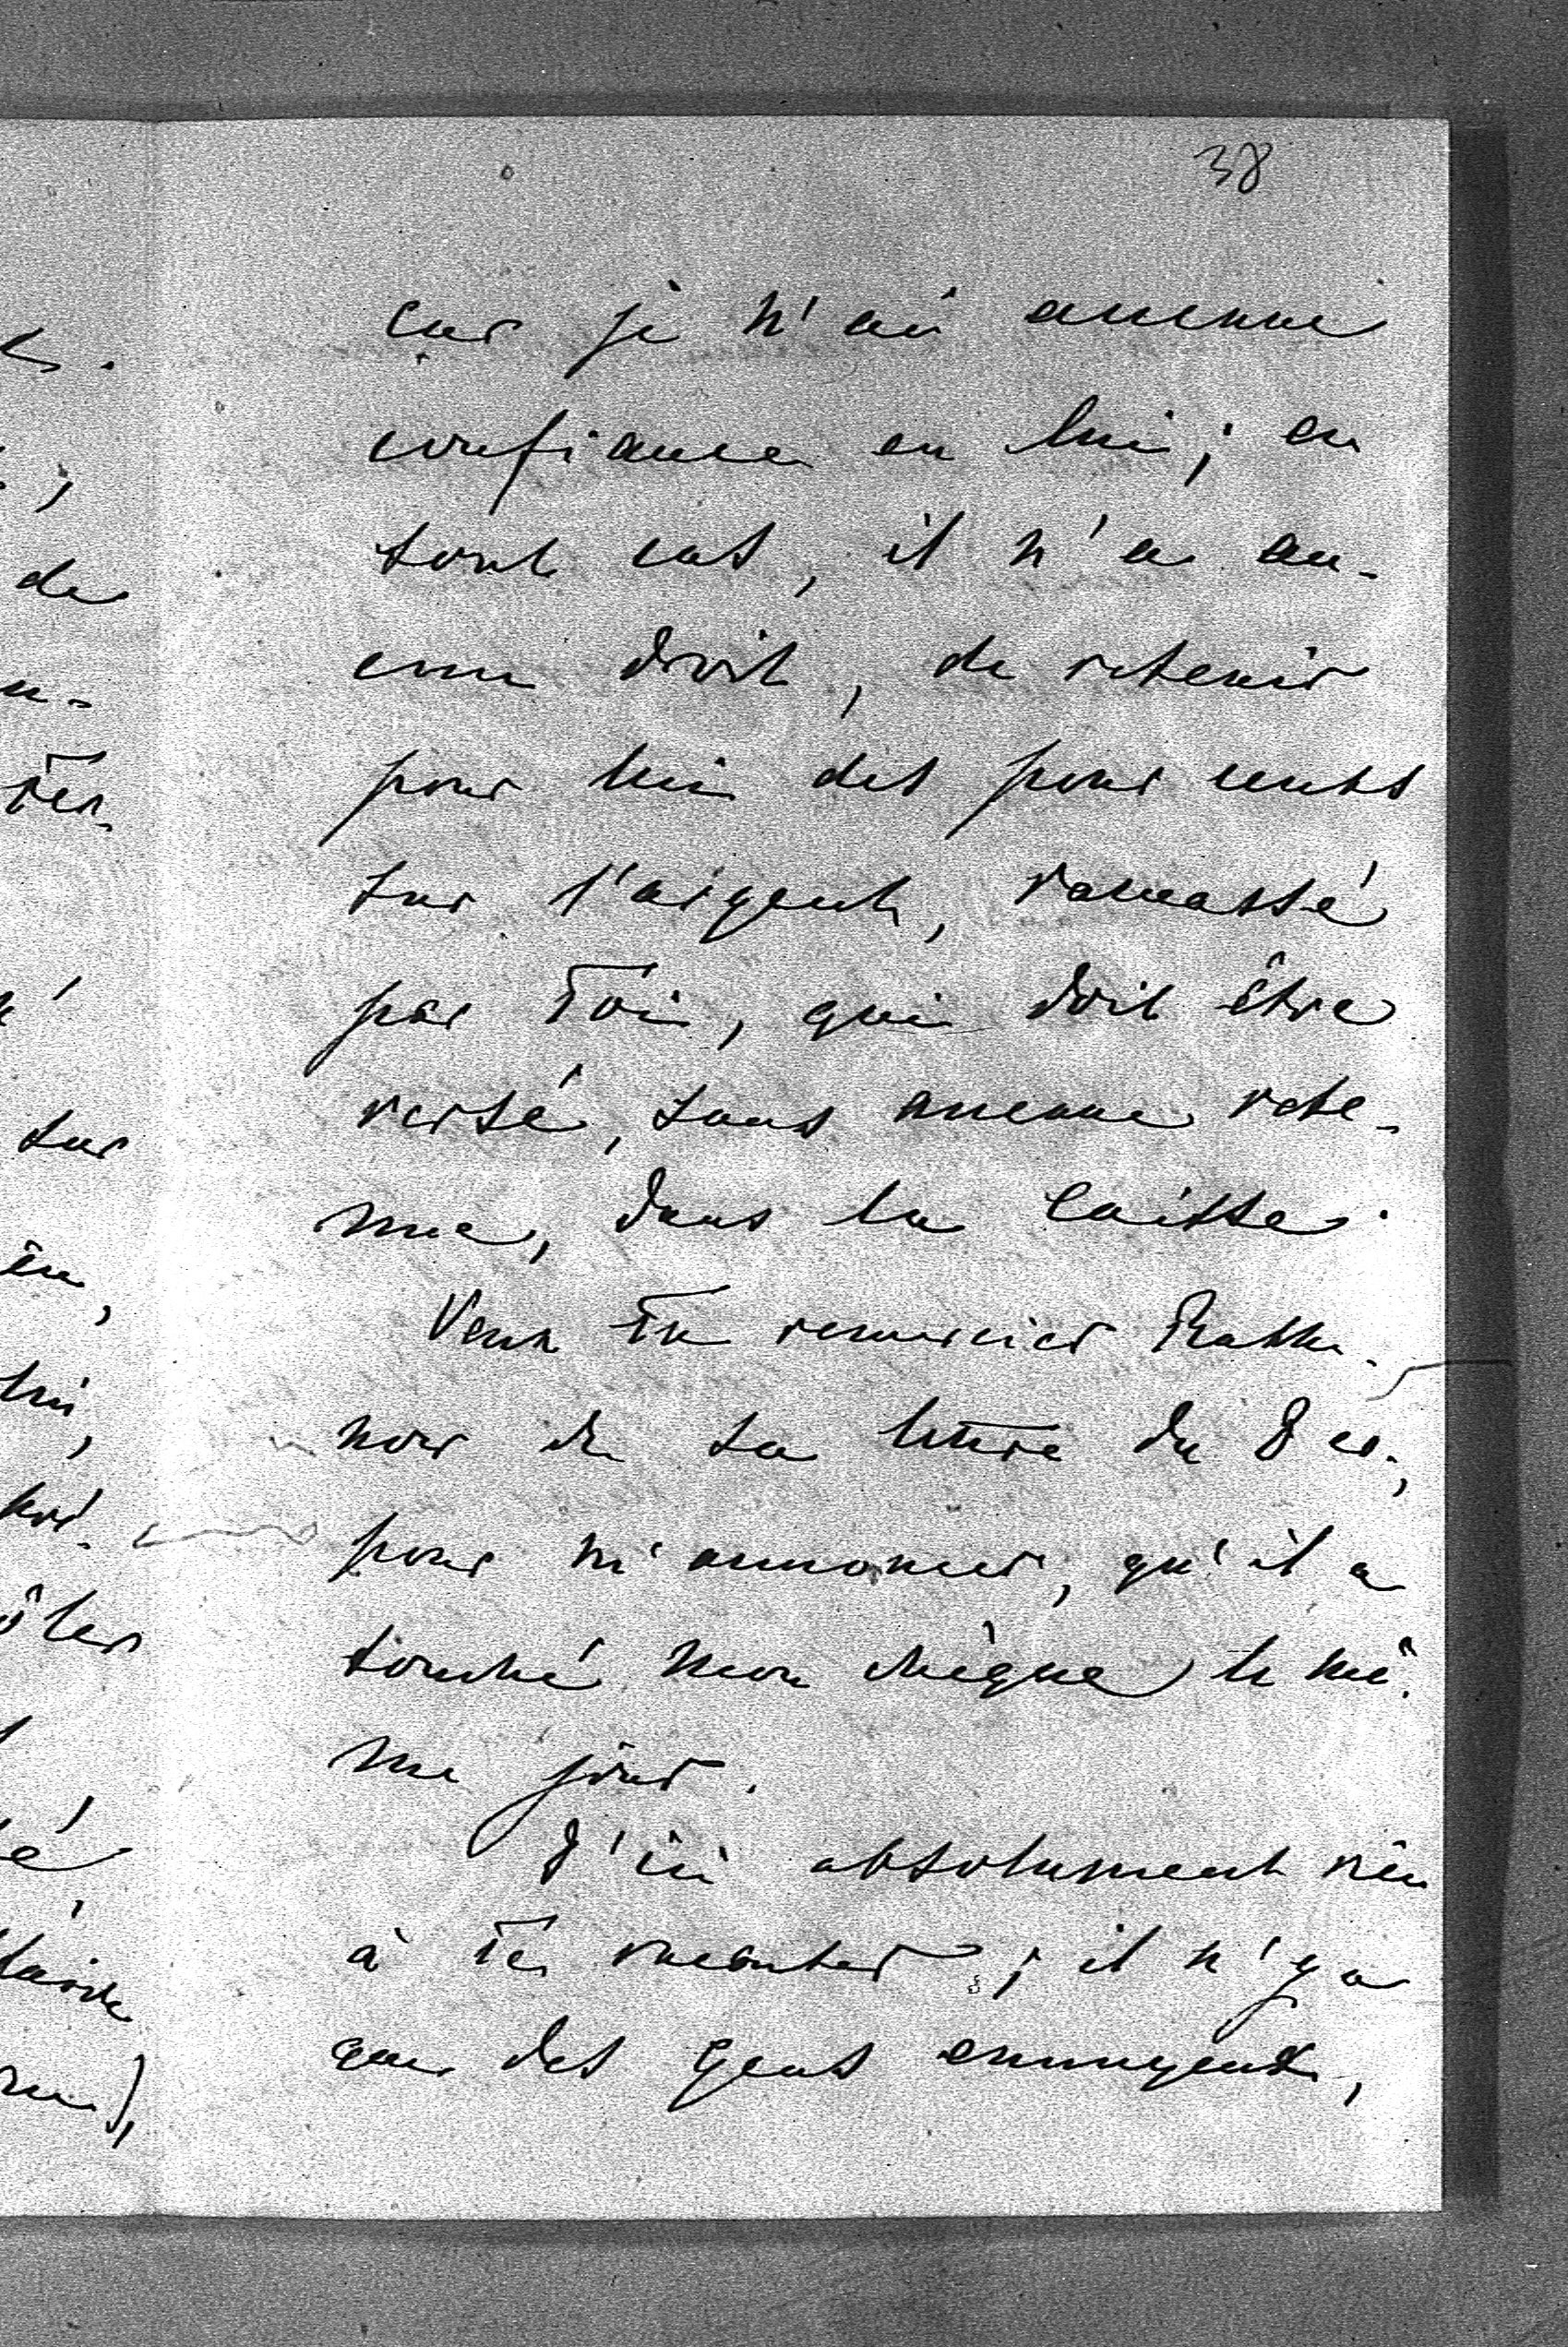 38
car je n'ai aucune
confiance en lui; en
tout cas, il n'a au-
cun droit, de retenir
pour lui des pour cents
sur l'argent, ramassé
par Toi, qui doit être
versé, sans aucune rete-
nue, dans la caisse.
Veux Tu remercier
de sa lettre du 8 cr.,
pour m'annoncer, qu'il a
touché mon chèque le mê-
me jour.
D'ici absolument rien
à Te raconter; il n'y a
que des gens ennuyeux,
de
sur
lui,